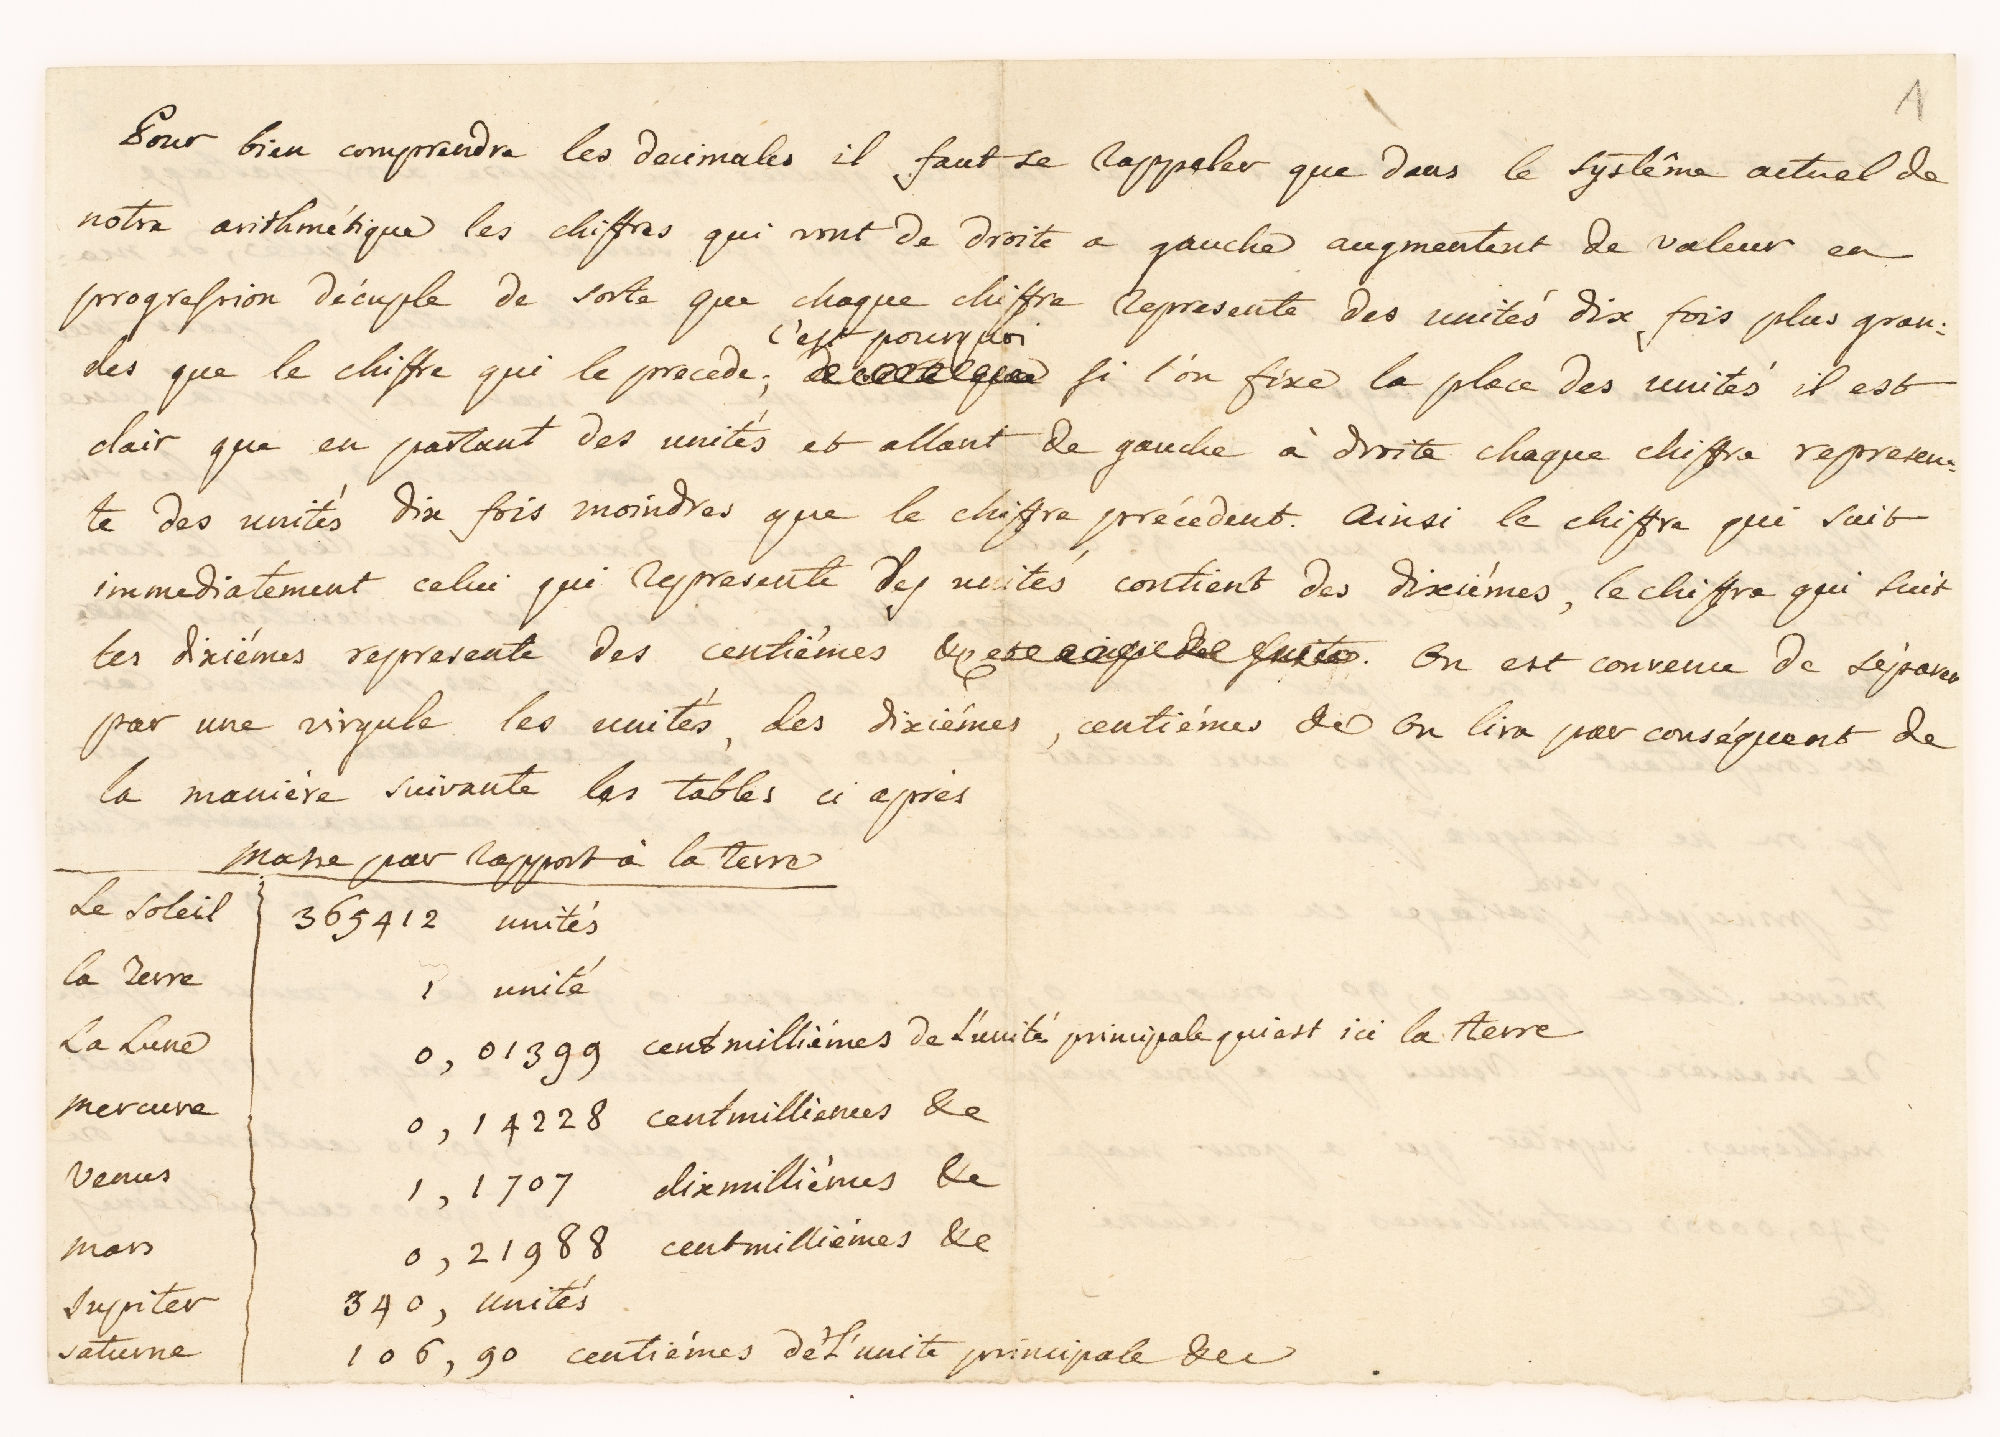 1
Pour bien comprendre les decimales il faut se rappeler que dans le systême actuel de
notre arithmétique les chiffres qui vont de droite a gauche augmentent de valeur en
progression décuple de sorte que chaque chiffre represente des unités dix fois plus gran:
c'est pourquoi
des que le chiffre qui le precede; si l'on fixe la place des unités il est
clair que en partant des unités et allant de gauche à droite chaque chiffre represen:
te des unités dix fois moindres que le chiffre précédent. Ainsi le chiffre qui suit
immediatement celui qui represente des unités contient des dixiémes, le chiffre qui suit
les dixiémes represente des centiémes &c et ainsi de suite. On est convenu de séparer
par une virgule les unités, des dixiémes, centiémes &c On lira par conséquent de
la maniére suivante les tables ci aprés
masse par rapport à la terre
Le soleil 365412 unités
la Terre 1 unité
La Lune 0,01399 centmilliémes de L'unité principale qui est ici la terre
mercure 0,14228 centmilliemes &c
venus 1,1707 dixmilliémes &c
mars 0,21988 centmilliémes &c
Jupiter 340, unités
saturne 106,90 centiémes de L'unite principale &cc